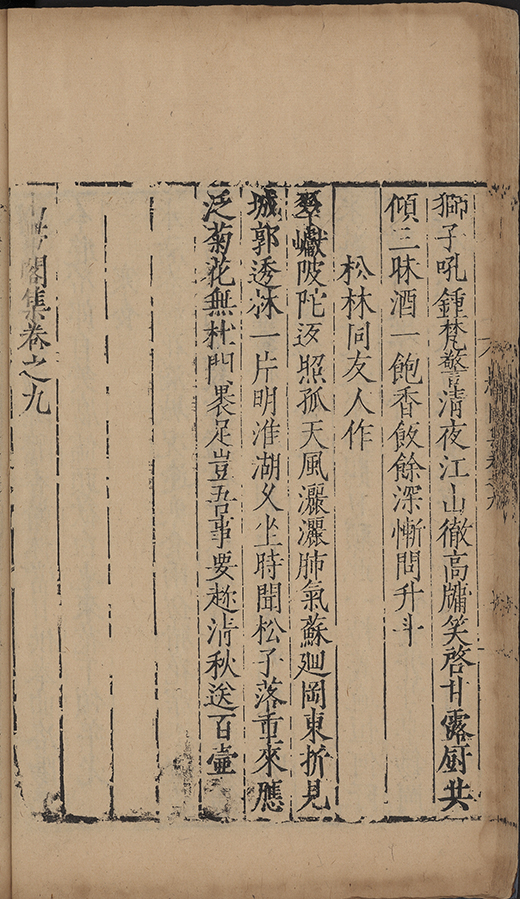 獅子吼鍾梵警清夜江山徹高牗笑啓甘露厨共
傾三昧酒一飽香飯餘深慚問升斗
松林同友人作
翠巘陂陀返照孤天風灑灑肺氣蘇廻岡東折見
城郭透林一片明淮湖久坐時聞松子落重來應
泛菊花無杜門褁足豈吾事要趂清秋送百壷
閣集卷之九